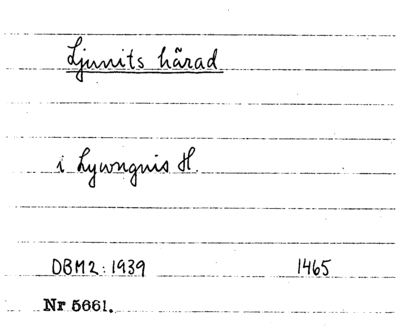 Ljunits härad
i Lywngnis H.
DBM2:1939 1465
Nr 5661.